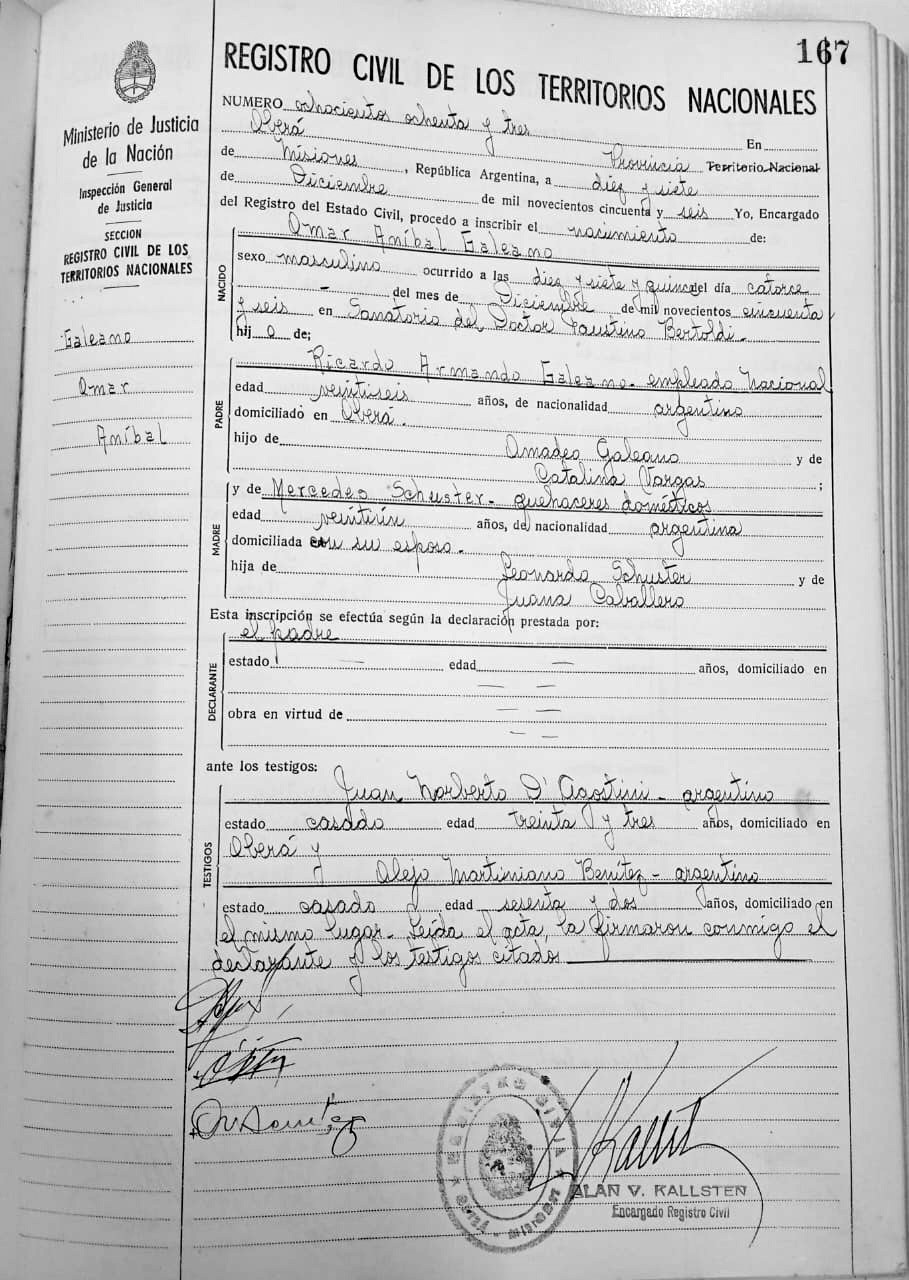 167
REGISTRO CIVIL DE LOS TERRITORIOS NACIONALES
Ministerio de Justicia
de la Nación
Inspección General
de Justicia
SECCION
REGISTRO CIVIL DE LOS
TERRITORIOS NACIONALES
Galeano
Omar
Aníbal
NUMERO ochocientos ochenta y tres
Oberá En
de Misiones, República Argentina, a diez y siete Provincia Territorio Nacional
de Diciembre de mil novecientos cincuenta y seis Yo, Encargado
del Registro del Estado Civil, procedo a inscribir el nacimiento de:
NACIDO
Omar Aníbal Galeano
sexo masculino ocurrido a las diez y siete y quince del día catorce
del mes de Diciembre de mil novecientos cincuenta
y seis en Sanatorio del Doctor Faustino Bertoldi.
hij o de;
PADRE
Ricardo Armando Galeano - empleado Nacional
edad veintiseis años, de nacionalidad argentino
domiciliado en Oberá.
hijo de Amadeo Galeano y de
Catalina Vargas ;
MADRE
y de Mercedes Schuster - quehaceres domésticos
edad veintiún años, de nacionalidad argentina
domiciliada con su esposo.
hija de Leonardo Schuster y de
Juana Caballero
Esta inscripción se efectúa según la declaración prestada por:
DECLARANTE
el padre
estado — edad — años, domiciliado en
— —
obra en virtud de — —
— —
ante los testigos:
TESTIGOS
Juan Norberto D'Agostini - argentino
estado casado edad treinta y tres años, domiciliado en
Oberá y
Alejo Martiniano Benítez - argentino
estado casado edad sesenta y dos años, domiciliado en
el mismo lugar. Leída el acta, la firmaron conmigo el
declarante y los testigos citados
ALAN V. KALLSTEN
Encargado Registro Civil